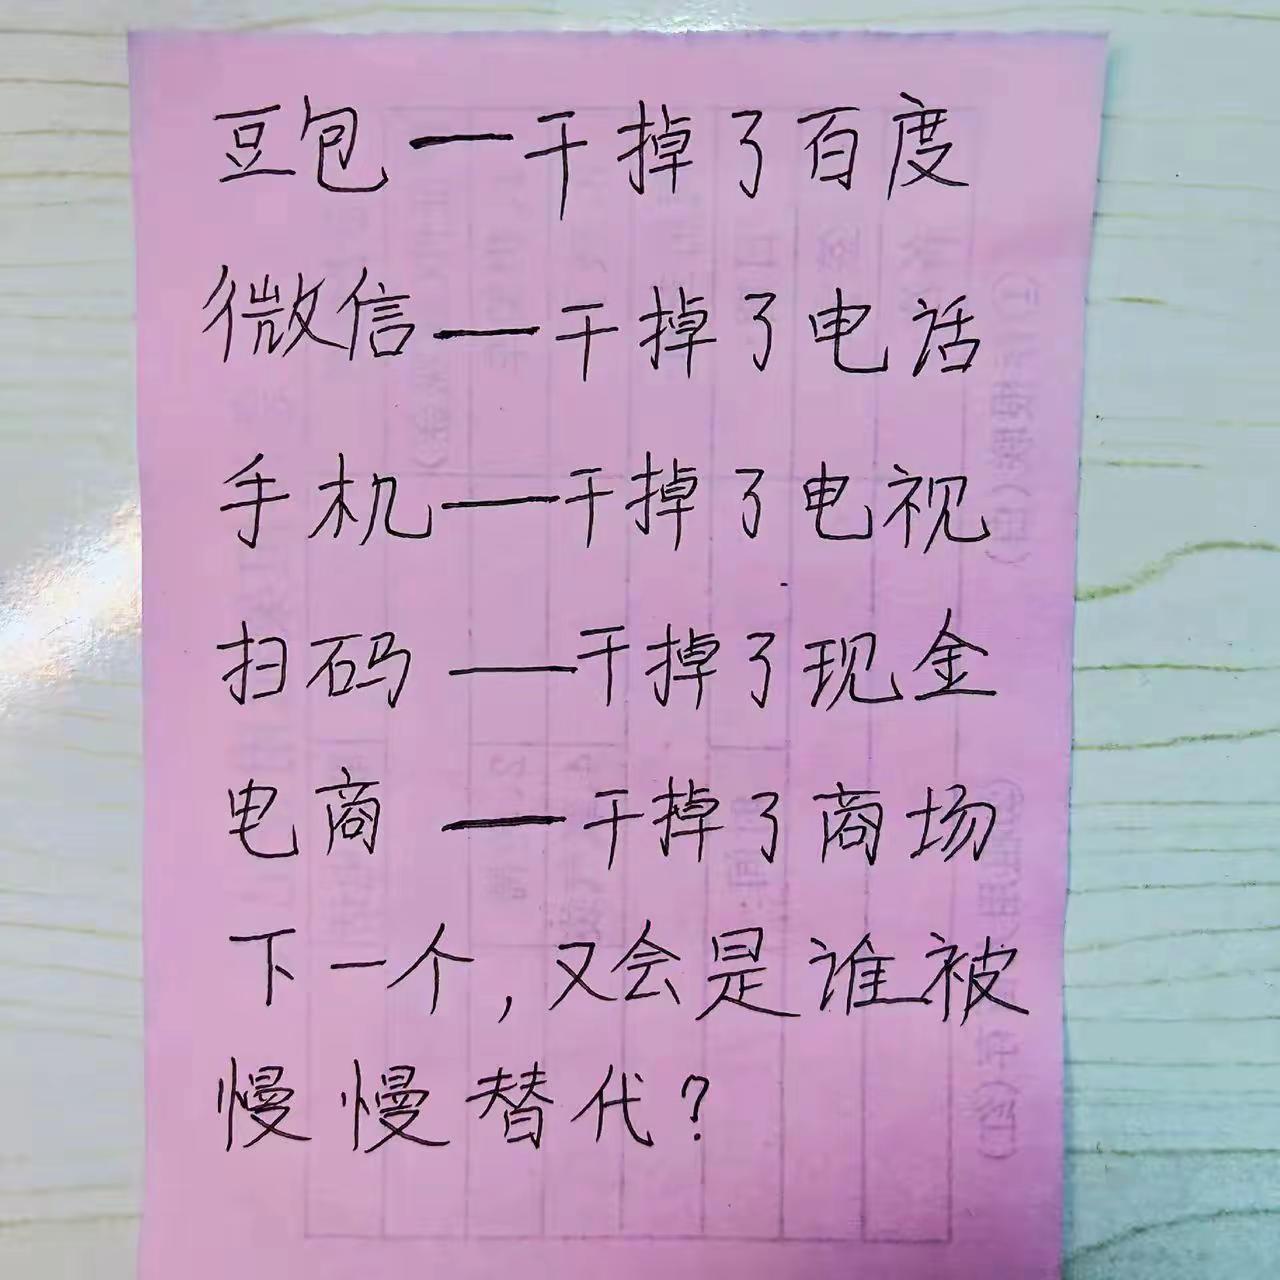 豆包—干掉了百度
微信—干掉了电话
手机—干掉了电视
扫码—干掉了现金
电商—干掉了商场
下一个,又会是谁被
慢慢替代?